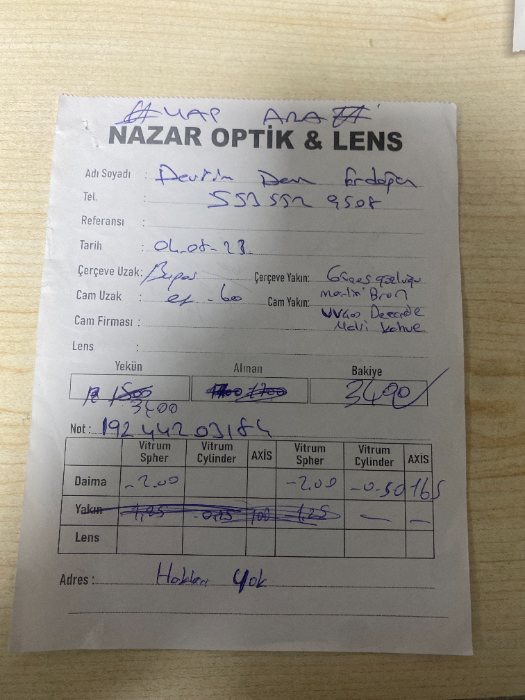 YAP ARA
NAZAR OPTİK & LENS
Adı Soyadı : Devrim Erdoğan
Tel. : 553 552 9508
Referansı :
Tarih : 04.08-23
Çerçeve Uzak: Çerçeve Yakın: Güneş gözlüğü
Cam Uzak : Cam Yakın:
UV400
Cam Firması : Mavi Kahve
Lens :
Yekün Alınan Bakiye
3400 3490
Not : 1924420318
Vitrum Spher Vitrum Cylinder AXİS Vitrum Spher Vitrum Cylinder AXİS
Daima -2.00 -2.00 -0.50 165
Yakın -1,25 -0,25 100 -1,25 — —
Lens
Adres : yok